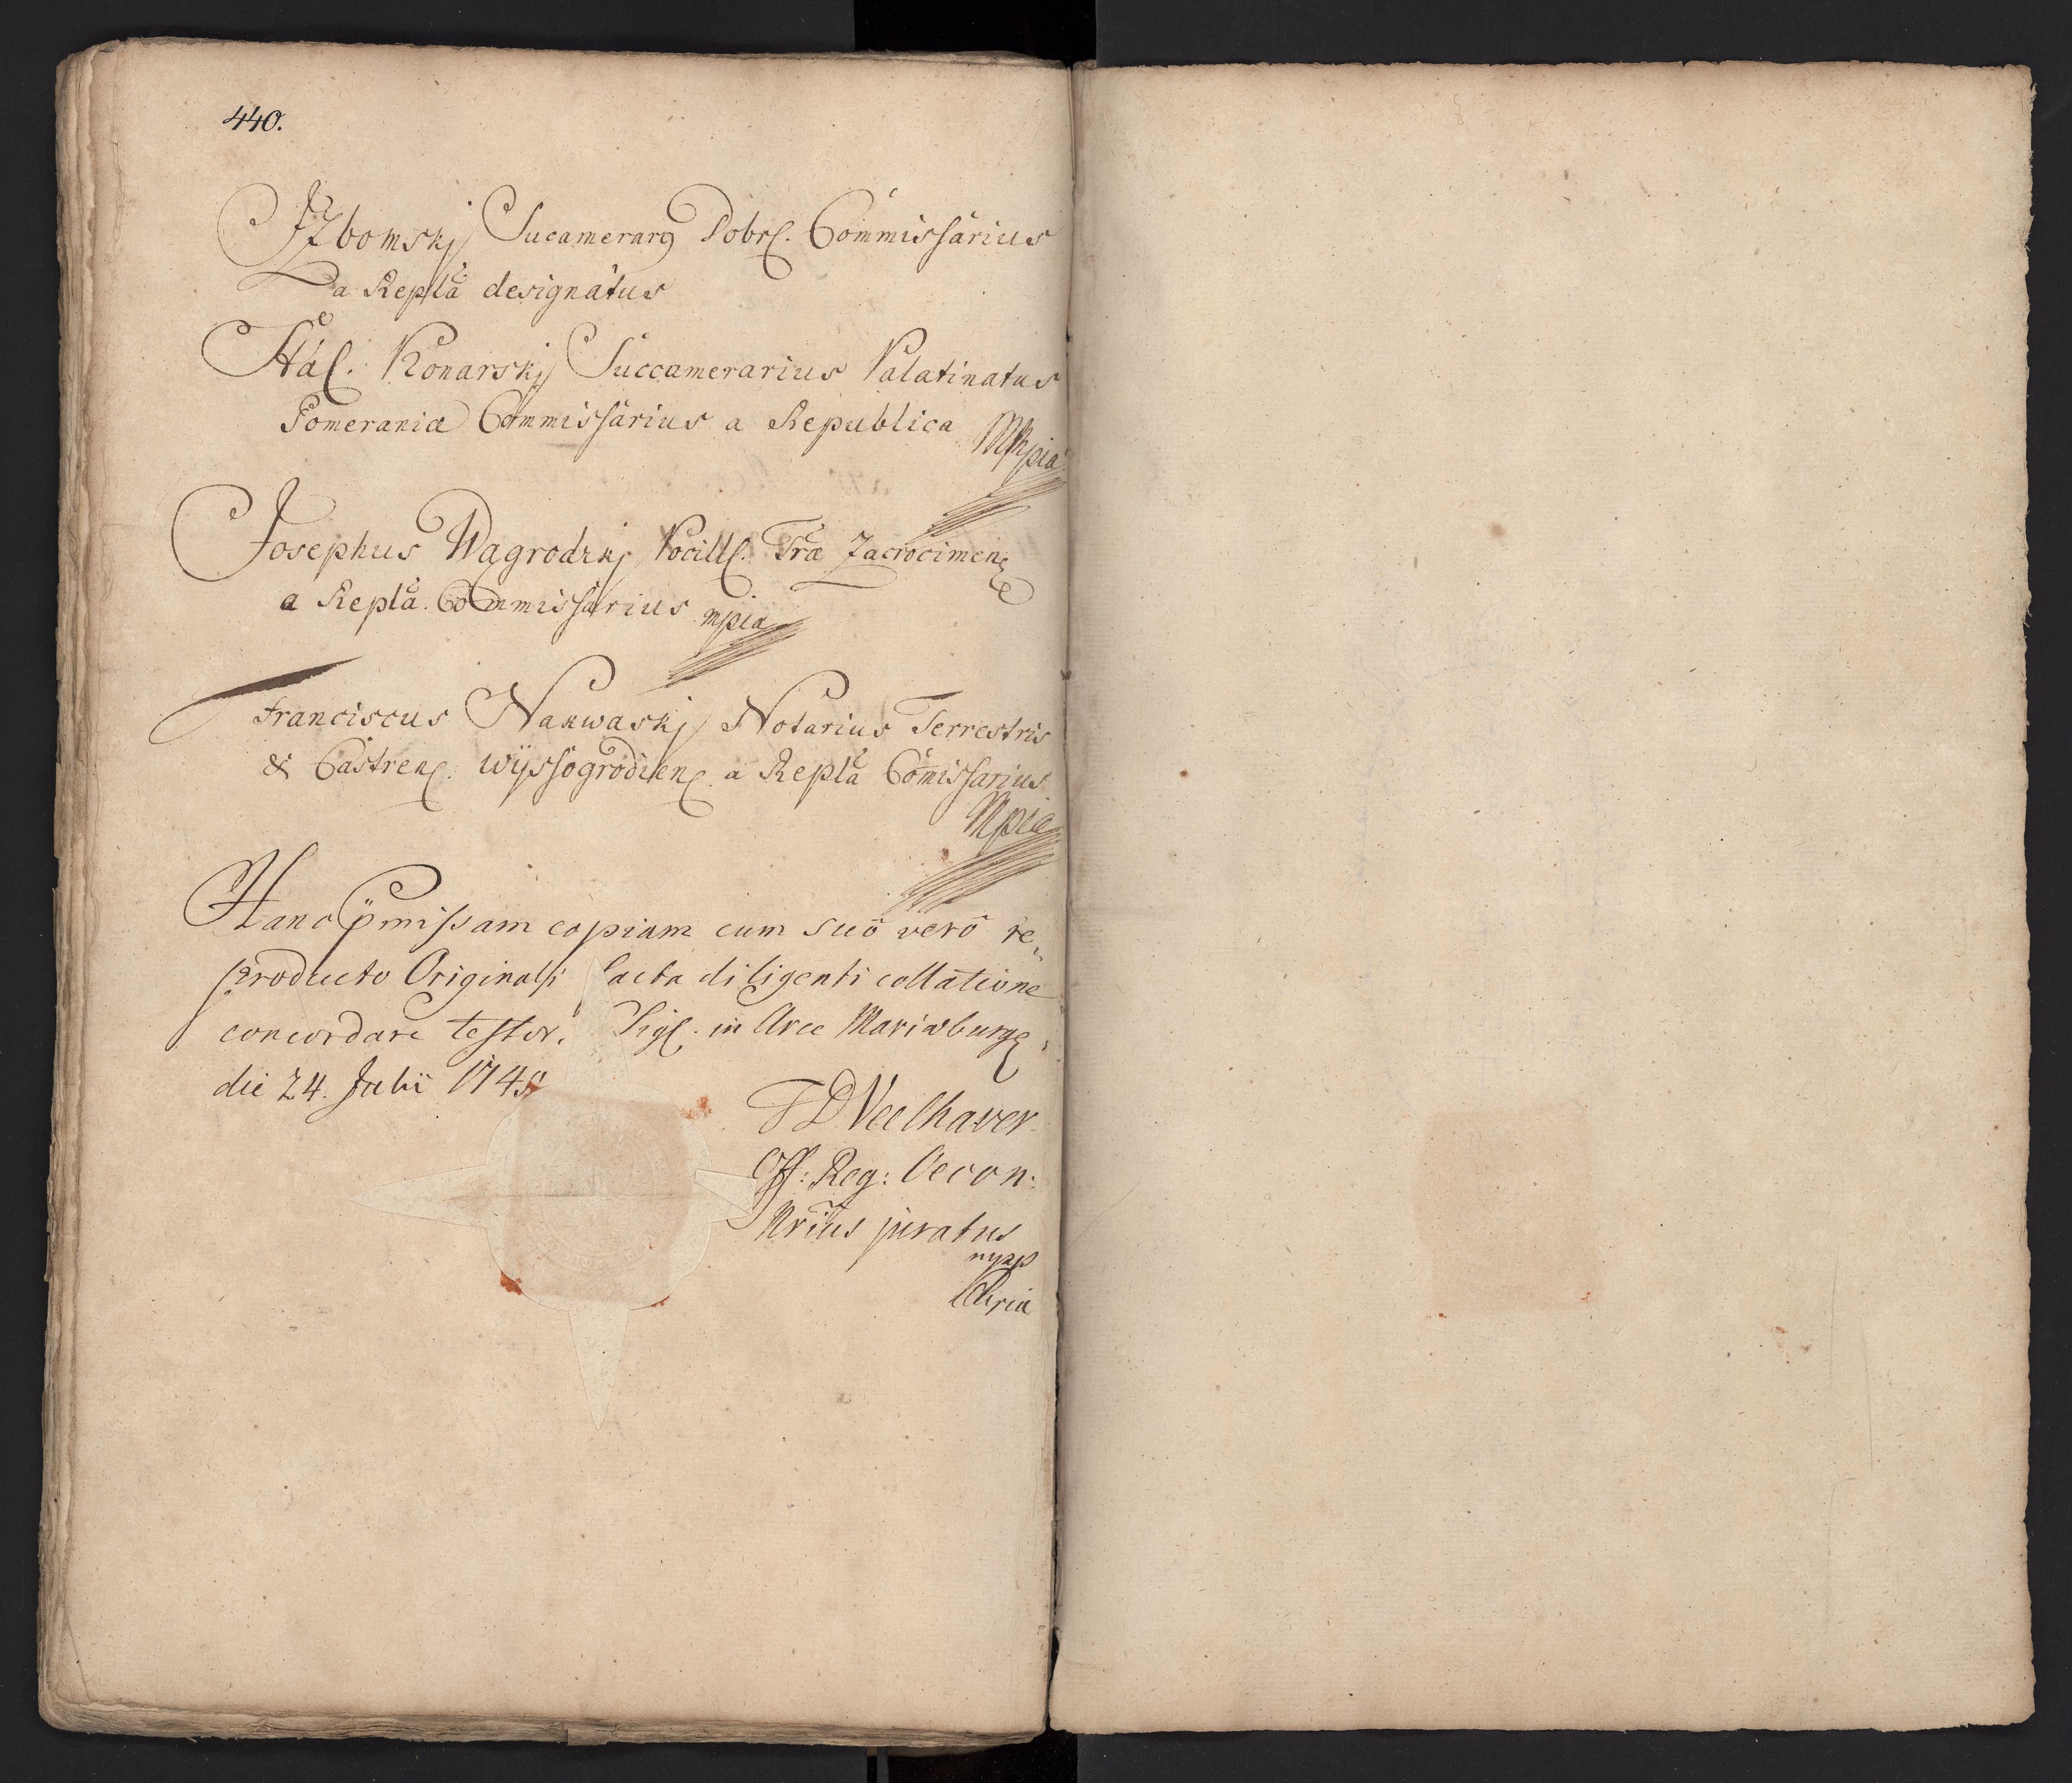 440.
JZbomskj Sucamerarꝯ Dobrſ. Commissarius
a Replâ designatus
Konarskj Succamerarius Palatinatus
Pomeraniæ Commissarius a Republica
Mpia
Josephus Wagrodzkj Pocillſ. Træ Zacrocimenſ
a Replâ. Commissarius mpia
Franciscus Nakwaskj Notarius Terrestris
& Castrenſ. Wÿssogrodienſ. a Replâ Comissarius
Mpia
Hanc pmissam copiam cum suô verô re„
producto Originali facta diligenti collatione
concordare testor. Sigſ. in Arce Mariæburgſ
die 24. Julii 174
Off: Reg: Oecon:
Nrius juratus
mpp